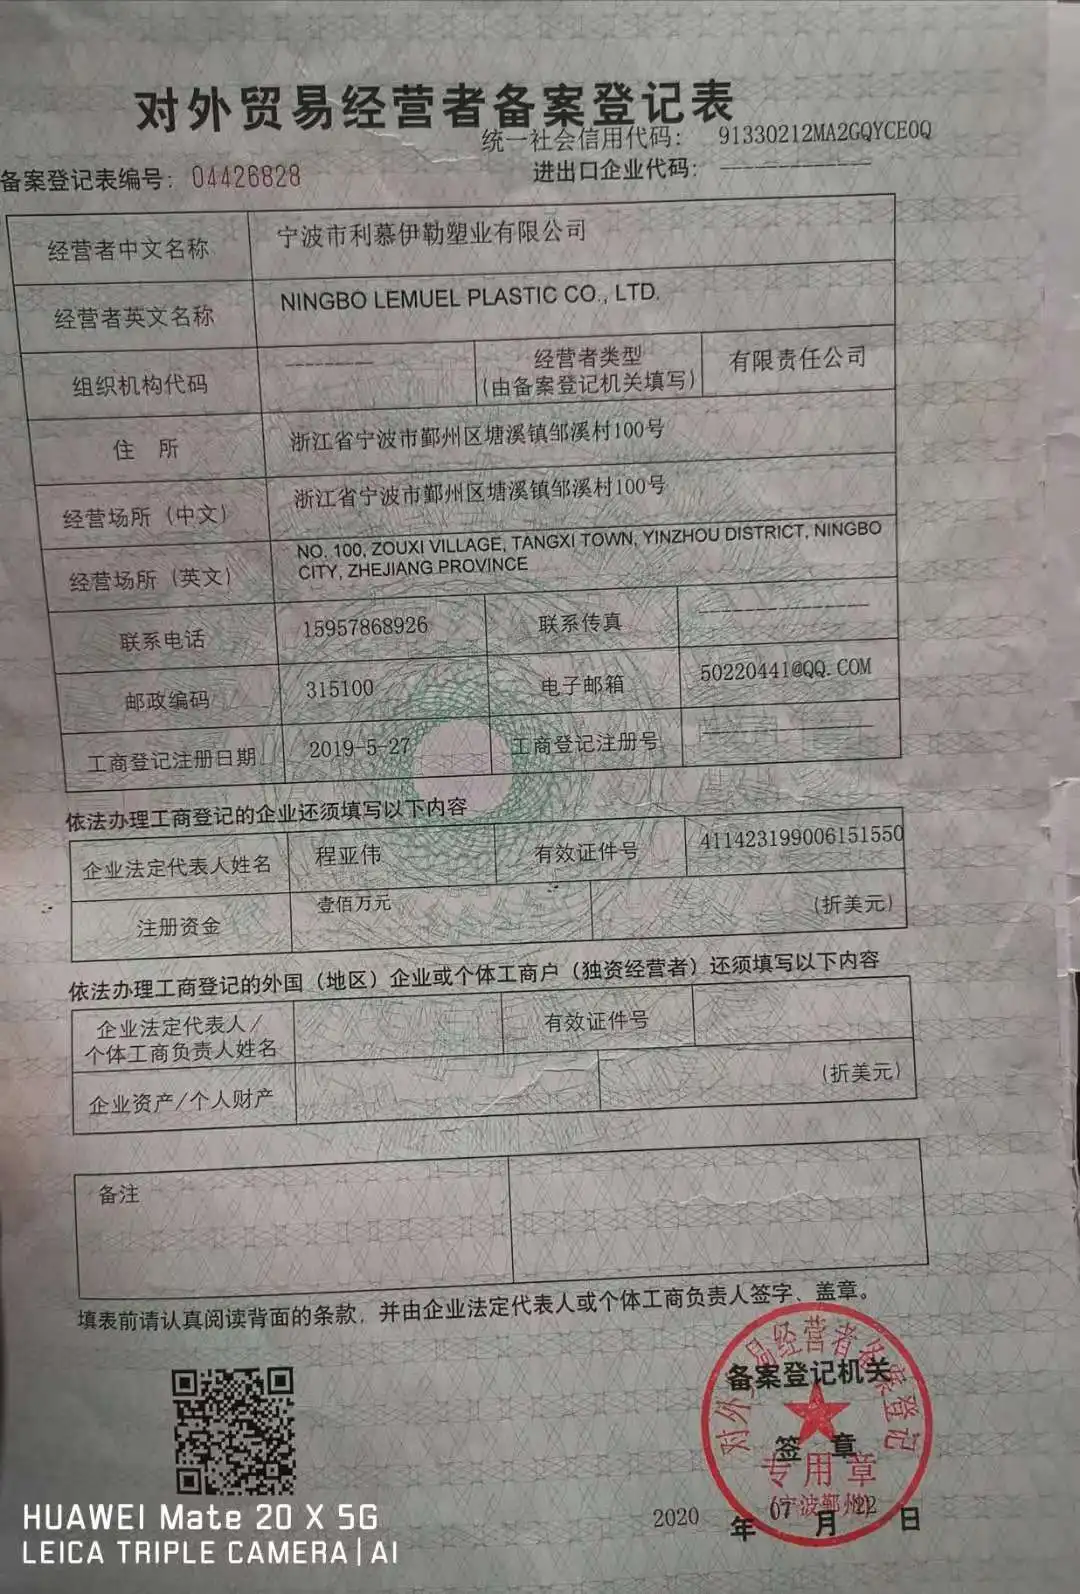 对外贸易经营者备案登记表
统一社会信用代码： 91330212MA2GQYCE0Q
备案登记表编号： 04426828
进出口企业代码： -------------
经营者中文名称 宁波市利慕伊勒塑业有限公司
经营者英文名称 NINGBO LEMUEL PLASTIC CO., LTD.
组织机构代码 ---------- 经营者类型 (由备案登记机关填写) 有限责任公司
住 所 浙江省宁波市鄞州区塘溪镇邹溪村100号
经营场所（中文） 浙江省宁波市鄞州区塘溪镇邹溪村100号
经营场所（英文） NO. 100, ZOUXI VILLAGE, TANGXI TOWN, YINZHOU DISTRICT, NINGBO
CITY, ZHEJIANG PROVINCE
联系电话 15957868926 联系传真 ---------------
邮政编码 315100 电子邮箱 50220441@QQ.COM
工商登记注册日期 2019-5-27 工商登记注册号 ---------------
依法办理工商登记的企业还须填写以下内容
企业法定代表人姓名 程亚伟 有效证件号 411423199006151550
注册资金 壹佰万元 (折美元)
依法办理工商登记的外国（地区）企业或个体工商户（独资经营者）还须填写以下内容
企业法定代表人/
个体工商负责人姓名 有效证件号
企业资产/个人财产 (折美元)
备注
填表前请认真阅读背面的条款，并由企业法定代表人或个体工商负责人签字、盖章。
备案登记机关
签 章
对外贸易经营者备案登记
专用章
(宁波鄞州)
2020 年 07 月 22 日
HUAWEI Mate 20 X 5G
LEICA TRIPLE CAMERA | AI